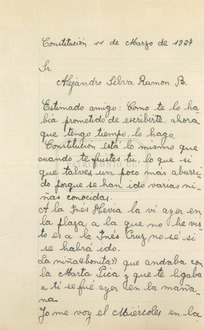 Constitución 11 de Marzo de 19
Sr.
Alejandro Silva Ramon B.
Estimado amigo: Como te lo ha-
bía prometido de escribirte, ahora
que tengo tiempo, lo hago.
Constitucion está lo mismo que
cuando te fuistes tú, lo que si
que talves un poco más aburri
do porque se han ido varias ni-
ñas conocidas.
A la Inés Hevia la vi ayer en
la plaza a la que no he vis-
to es a la Inés Cruz no se si
se habrá ido.
La niña «bonita» que andaba con
la Marta Pica y que te ligaba
a ti se fué ayer en la maña-
na.
Yo me voy el Miércoles en la